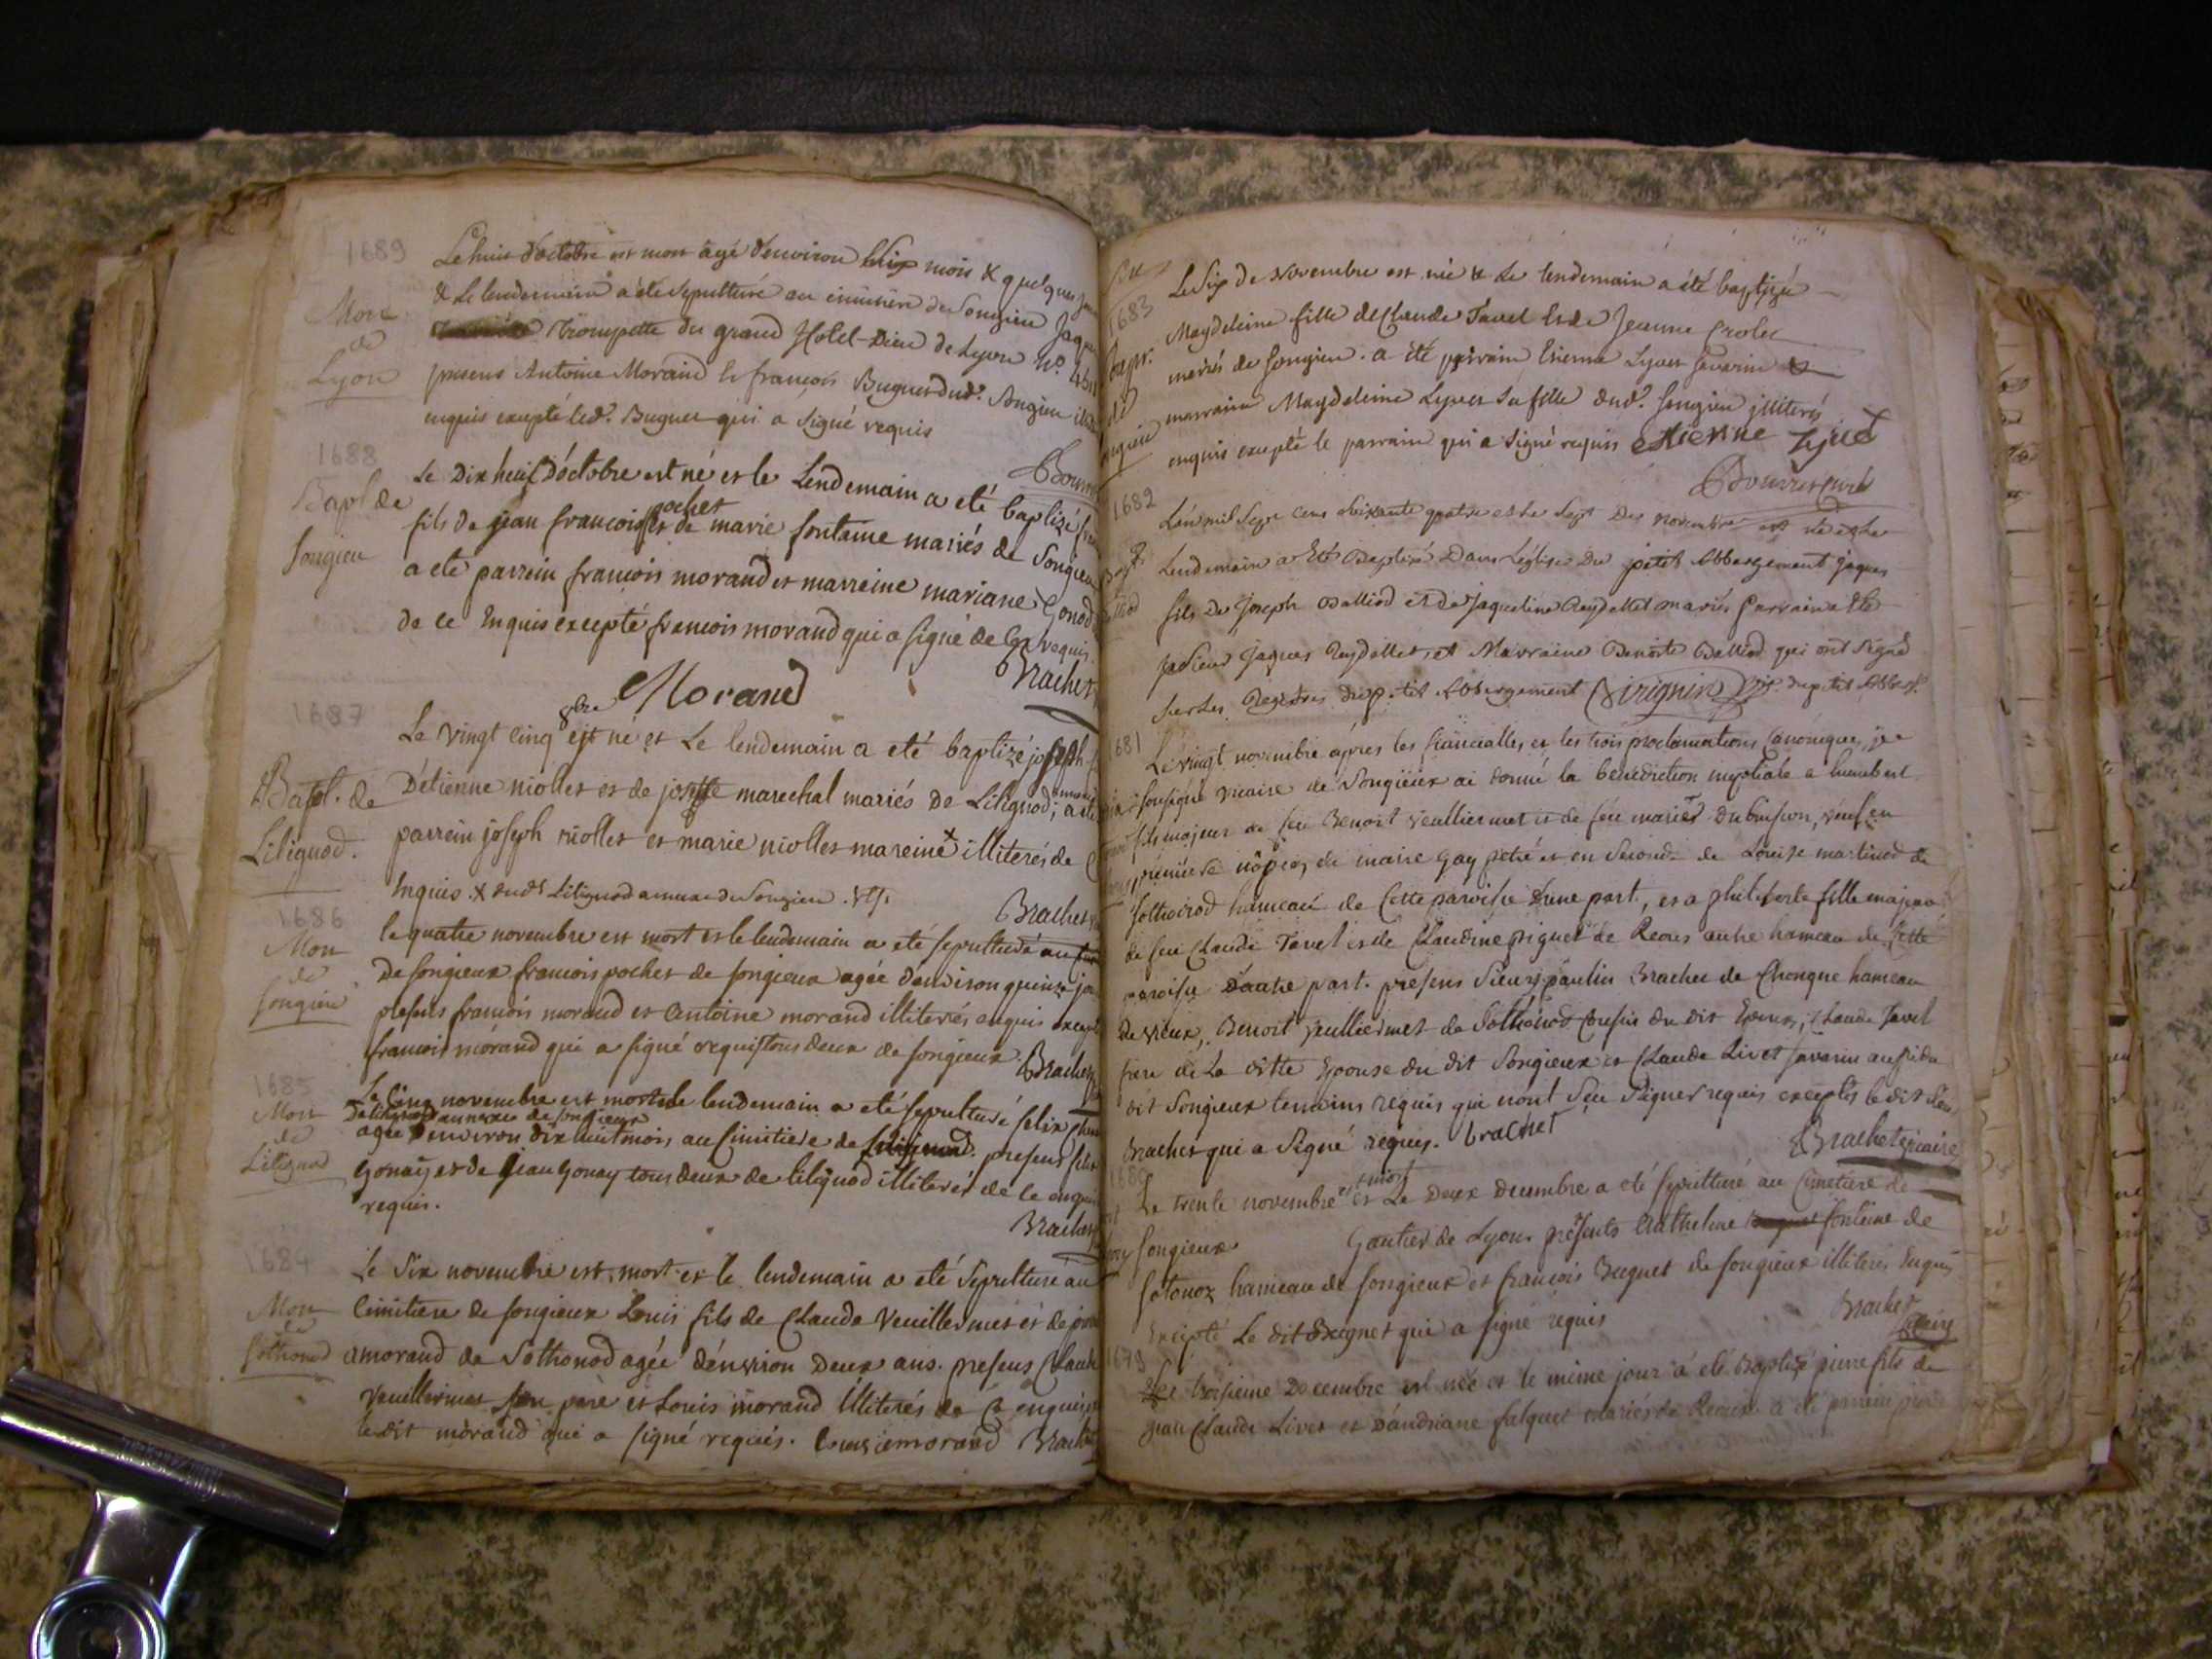 1689
Le huit d'octobre est mort agé d'environ six mois & quelques
& Le lendemain a été sepulturé au cimitière de Songieu Jaque
Mort de Lyon
Trompette du grand Hotel-Dieu de Lyon N°.
presens Antoine Morand & françois Buguet dud. Songieu
enquis excepté led. Buguet qui a signé requis
1688
Bapt. de Songieu
Le Dix huit D'octobre est né et le Lendemain a eté baptizé
fils de jean francois pochet et de marie fontaine mariés de Songieu
a eté parrein francois morand et marreine mariane Gonod
de ce Enquis excepté francois morand qui a signé de ce requis
Morand Brachet
1687
Bapt. de Litignod.
Le vingt cinq 8bre est né et Le lendemain a eté baptizé joseph
D'etienne niollet et de josephte marechal mariés de Litignod; a eté
parrein joseph niollet et marie niollet mareine x illiterés de
Enquis. x dudt Litignod annexe de Songieu
Brachet
1686
Mort de Songieu
le quatre novembre est mort et le lendemain a eté sepulturé au
De songieux francois pochet de songieux agée d'environ quinze
presents francois morand et antoine morand illiterés enquis excepté
francois morand qui a signé requis tous deux de songieux. Brachet
1685
Mort de Litignod
Le Cinq novembre est mort et le lendemain a eté sepulturé felix
De Litignod annexe de songieux
agée d'environ dix huit mois, au Cimitiere de presens felix
Gonay et de jean Gonay tous deux de litignod illiterés de ce enquis
requis.
Brachet
1684
Mort de Sothonod
Le Six novembre est mort et le lendemain a eté sepulturé au
Cimitiere de songieux Louis fils de Claude Veuillermet et de
amorand de Sothonod agée d'environ Deux ans. presens Claude
Veuillermet son père et Louis morand Illiterés de Ce enquis
ledit morand qui a signé requis. Louis morand Brachet
1683
Bapt. de Songieu
Le Six de Novembre est née & Le lendemain a été baptizée
Magdeleine fille de Claude Tavel & de Jeanne Crolet
mariés de Songieu. a été parrain Etienne Lyvet Savarin &
marraine Magdeleine Lyvet sa fille dud. Songieu illiterés
enquis excepté le parrain qui a signé requis etienne Lyvet
1682
L'an mil Sept cens Soixante quatre et Le Sept De novembre est né et Le
Lendemain a Eté Baptizé Dans L'église Du petit Abbergement jaques
fils De joseph Balliod et De Jaqueline Reydellet mariés Parrain a Eté
jaques Reydellet, et Marraine Benoite Balliod qui ont signé
Sur Les Registres du petit Abbergement du petit Abberg.
1681
Le vingt novembre après les fiancialles et les trois proclamations Canonique, je
soussigné vicaire de Songieux ai donné la bénédiction nuptiale a humbert
fils majeur de feu Benoit veuilliermet et de feüe marie Dubuisson, veuf en
première nôpces de marie Gay et en seconde de Louise martinod de
Sothonod hameau de Cette paroisse D'une part, et a philiberte fille majeure
de feu Claude Tavel et de Claudine piguet de Reoux autre hameau de Cette
paroisse D'autre part. presens Sieur paulin Brachet de Chongne hameau
De vieux, Benoit veuilliermet de Sothonod Cousin du dit Epoux, Claude Tavel
frere de La ditte Epouse du dit Songieux et Claude Livet savarin aussi du
dit Songieux temoins requis qui n'ont Sçu Signer requis exceptés le dit Sieur
Brachet qui a Signé requis. brachet
Brachet vicaire
1680
Le trente novembre est mort et Le Deux Decembre a eté sepulturé au Cimetiere de
songieux Gautier de Lyon présents Catheline fontaine de
Sotonoz hameau de Songieux et francois Buguet de songieux illiteres Enquis
Excepté Le dit Buguet qui a signé requis
Brachet vicaire
1679
Le troisieme Decembre est née et le même jour a eté Baptizé pierre fils de
jean Claude Livet et d'andriane falquet mariés de Reoux a eté parrein